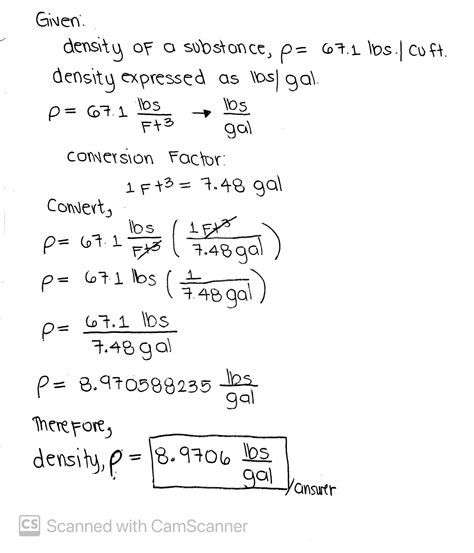 Given:
density of a substance, ρ= 67.1 lbs./cuft.
density expressed as lbs/gal.
ρ= 67.1 lbs/Ft³ → lbs/gal
conversion Factor:
1 Ft³ = 7.48 gal
Convert,
ρ= 67.1 lbs/Ft³ (1 Ft³/7.48 gal)
ρ= 67.1 lbs (1/7.48 gal)
ρ= 67.1 lbs/7.48 gal
ρ= 8.970588235 lbs/gal
Therefore,
density, ρ = 8.9706 lbs/gal /answer
CS Scanned with CamScanner